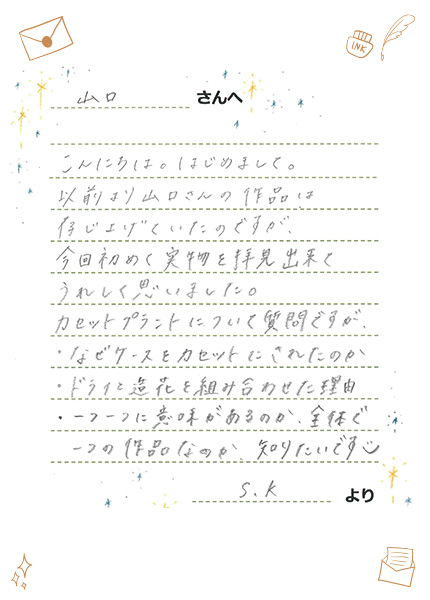 INK
山口 さんへ
こんにちは。はじめまして。
以前より山口さんの作品は
存じ上げていたのですが、
今回初めて実物を拝見出来て
うれしく思いました。
カセットプラントについて質問ですが、
・なぜケースをカセットにされたのか
・ドライと造花を組み合わせた理由
・一つ一つに意味があるのか、全体で
一つの作品なのか、知りたいです
S.K より